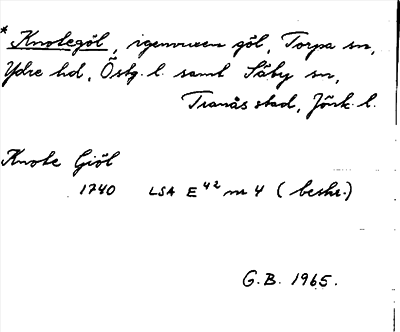 * Knotegöl, igenvuxen göl, Torpa sn,
Ydre hd, Östg. l. samt Säby sn,
Tranås stad, Jönk. l.
Knote Giöl
1740 LSA E 42 nr 4 (beskr.)
G.B. 1965.